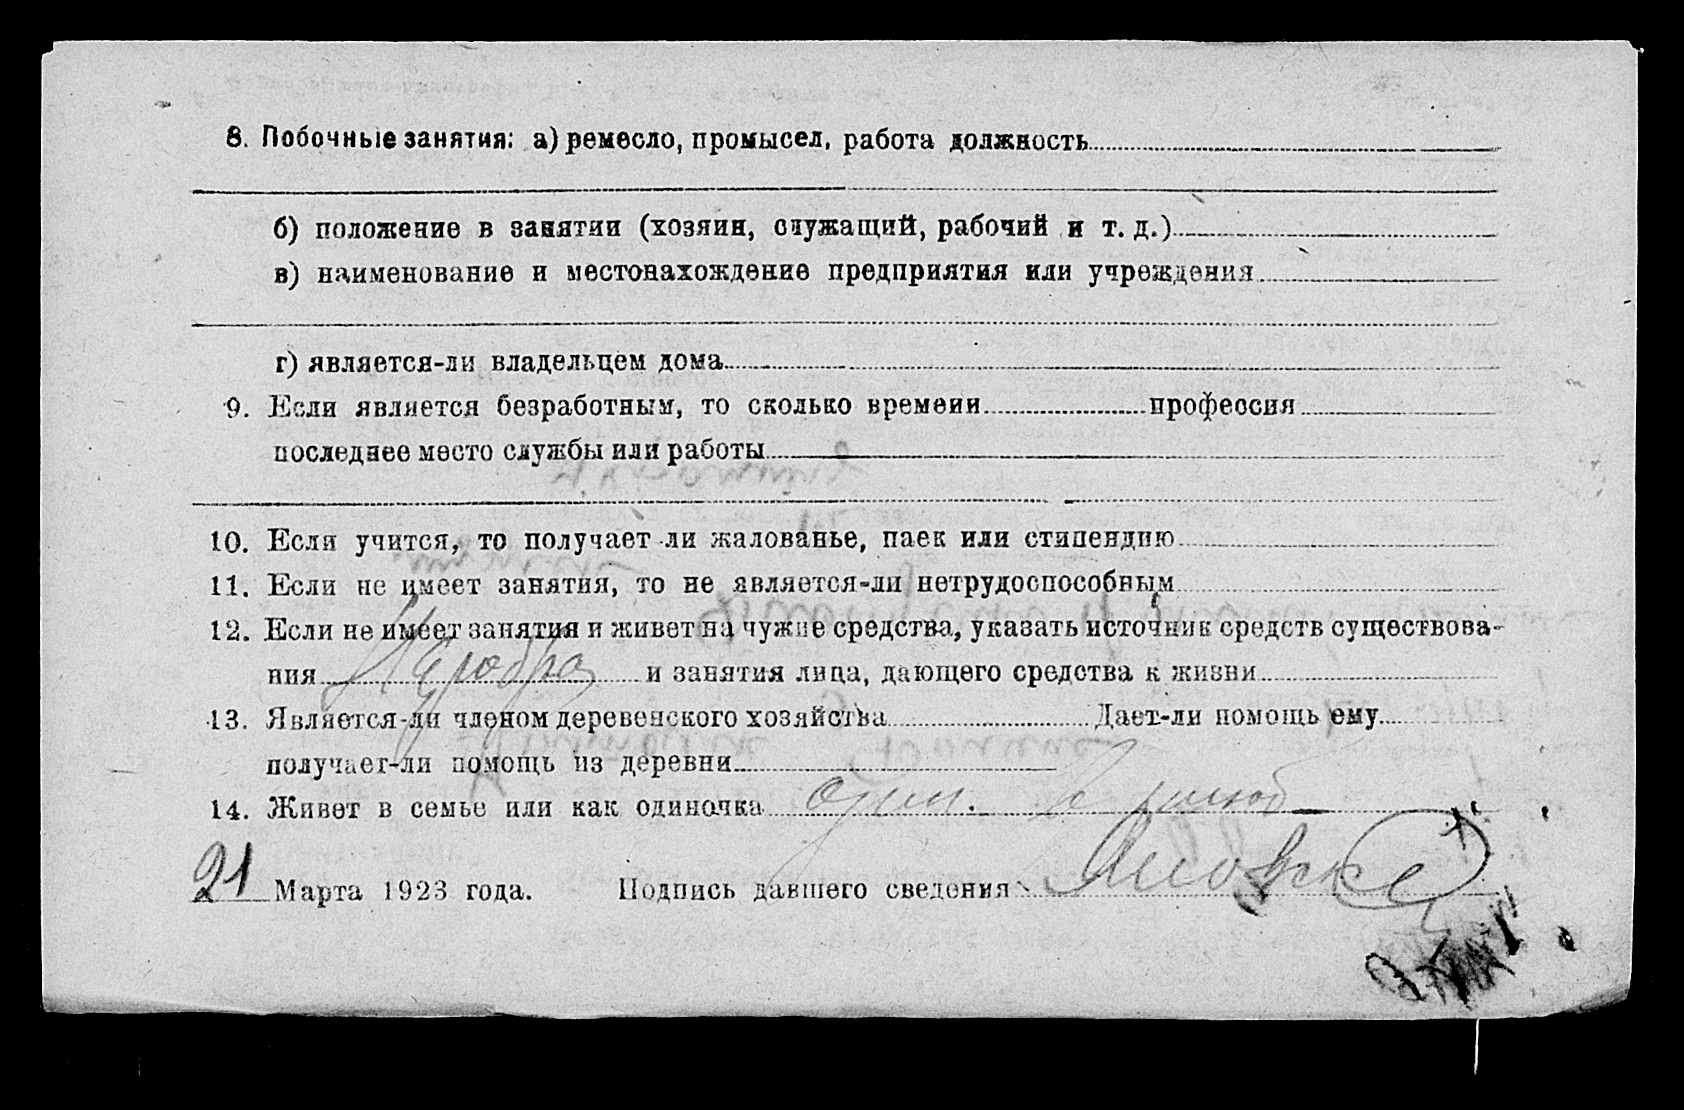 8. Побочные занятия: а) ремесло, промысел, работа должность
б) положение в занятии (хозяин, служащий, рабочий и т. д.)
в) наименование и местонахождение предприятия или учреждения
г) является-ли владельцем дома
9. Если является безработным, то сколько времени профессия
последнее место службы или работы
10. Если учится, то получает-ли жалованье, паек или стипендию
11. Если не имеет занятия, то не является-ли нетрудоспособным
12. Если не имеет занятия и живет на чужие средства, указать источник средств существова-
ния и занятия лица, дающего средства к жизни
13. Является-ли членом деревенского хозяйства Дает-ли помощь ему
получает-ли помощь из деревни
14. Живет в семье или как одиночка один.
21 Марта 1923 года. Подпись давшего сведения